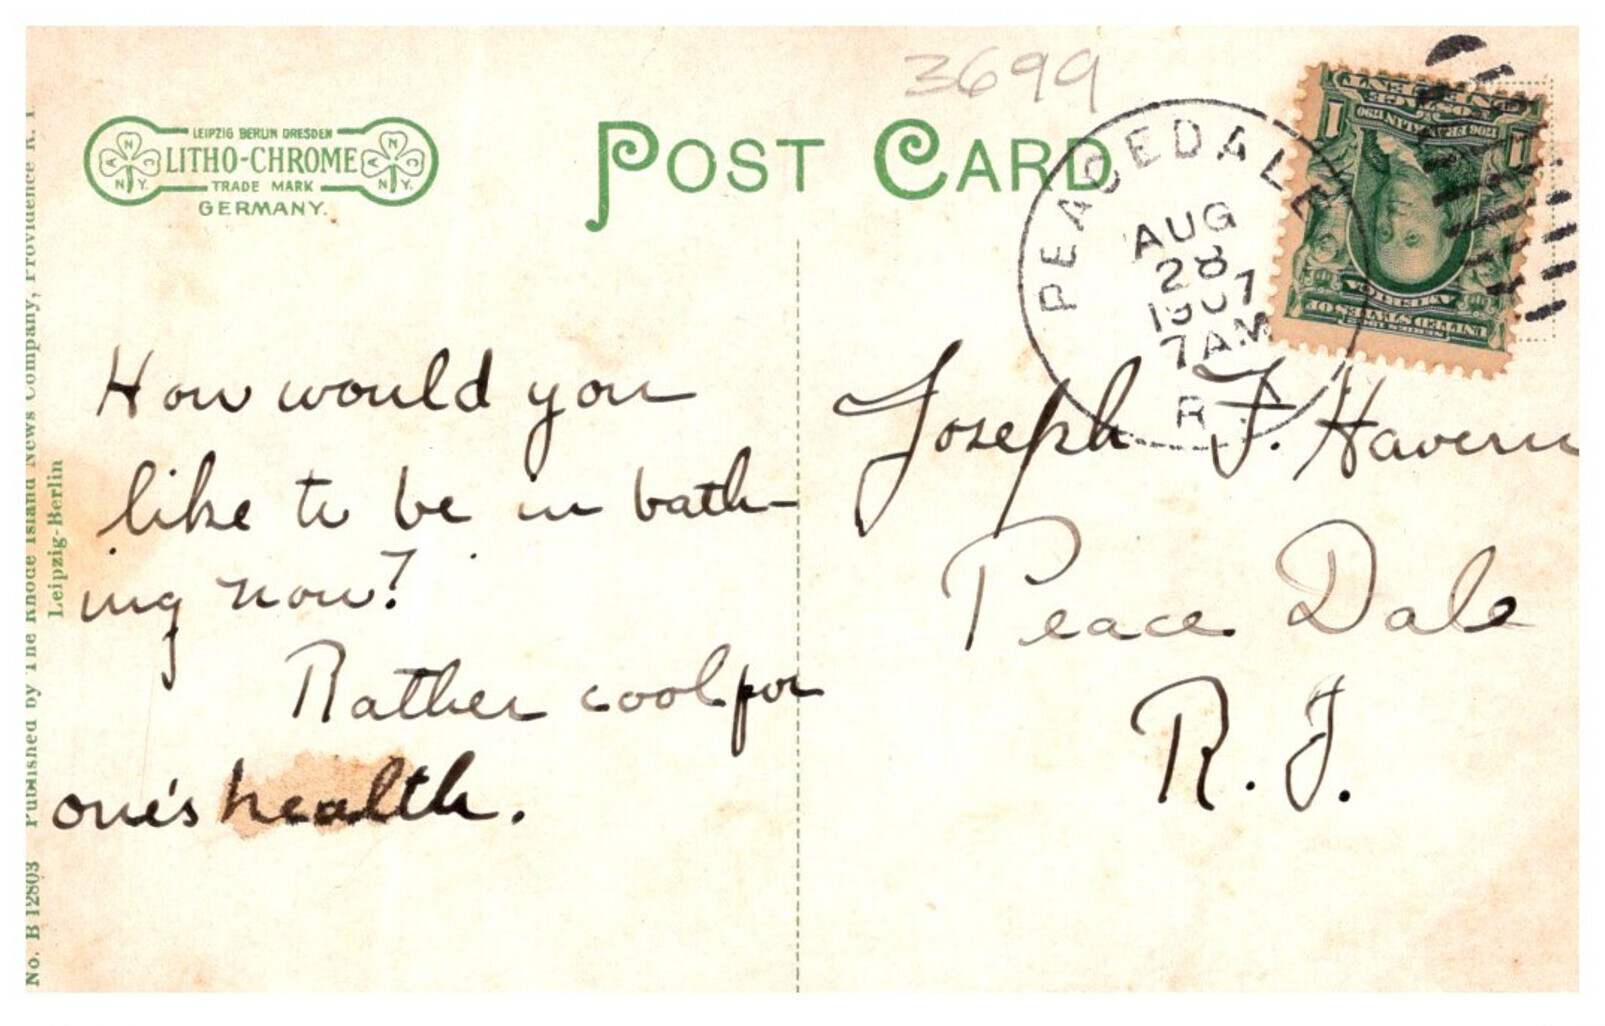 3699
LEIPZIG BERLIN DRESDEN
LITHO-CHROME
TRADE MARK
GERMANY.
N
A C
N.Y.
N
A C
N.Y.
POST CARD
PEACEDALE
AUG
28
1907
7AM
R.I.
ONE CENT
1706 FRANKLIN 1790
1 1
UNITED STATES OF
AMERICA
How would you
like to be in bath-
ing now?
Rather cool for
one's health.
Joseph F. Havern
Peace Dale
R.I.
No. B 12803 Published by The Rhode Island News Company, Providence R. I.
Leipzig-Berlin